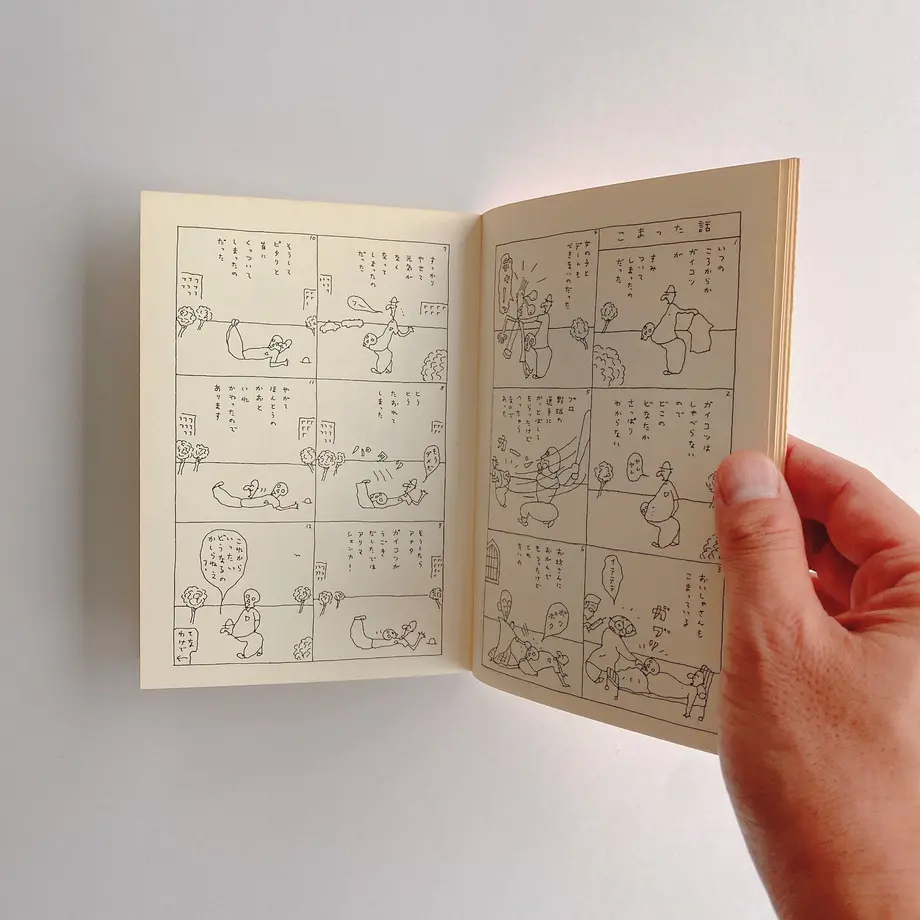 こまった話
1
いつの
ころからか
ガイコン
が
すみ
ついて
しまったの
だった
2
ガイコツは
しゃべらない
ので
どこの
どなたか
さっぱり
わからない
おいしゃさんも
こまっている
イテテテ
ガブッ
4
女の子と
デートも
できないのだった
5
プロ
野球の
選手に
かっとばして
もらったけど
6
お坊さんに
おがんで
もらったけど
ポクポク
7
すっかり
やせて
元気が
なく
なって
しまったの
だった
8
とう
とう
たおれて
しまった
もう
ダメだ
9
そうしたら
アナタ
ガイコツが
うごき
だしたでは
アリマ
センカ!
10
そうして
ピタリと
首に
くっついて
しまったの
だった
11
やがて
ほんとうの
かおと
いれ
かわったので
あります
12
これから
いったい
どうなるの
かしらねェ
てな
わけで
←